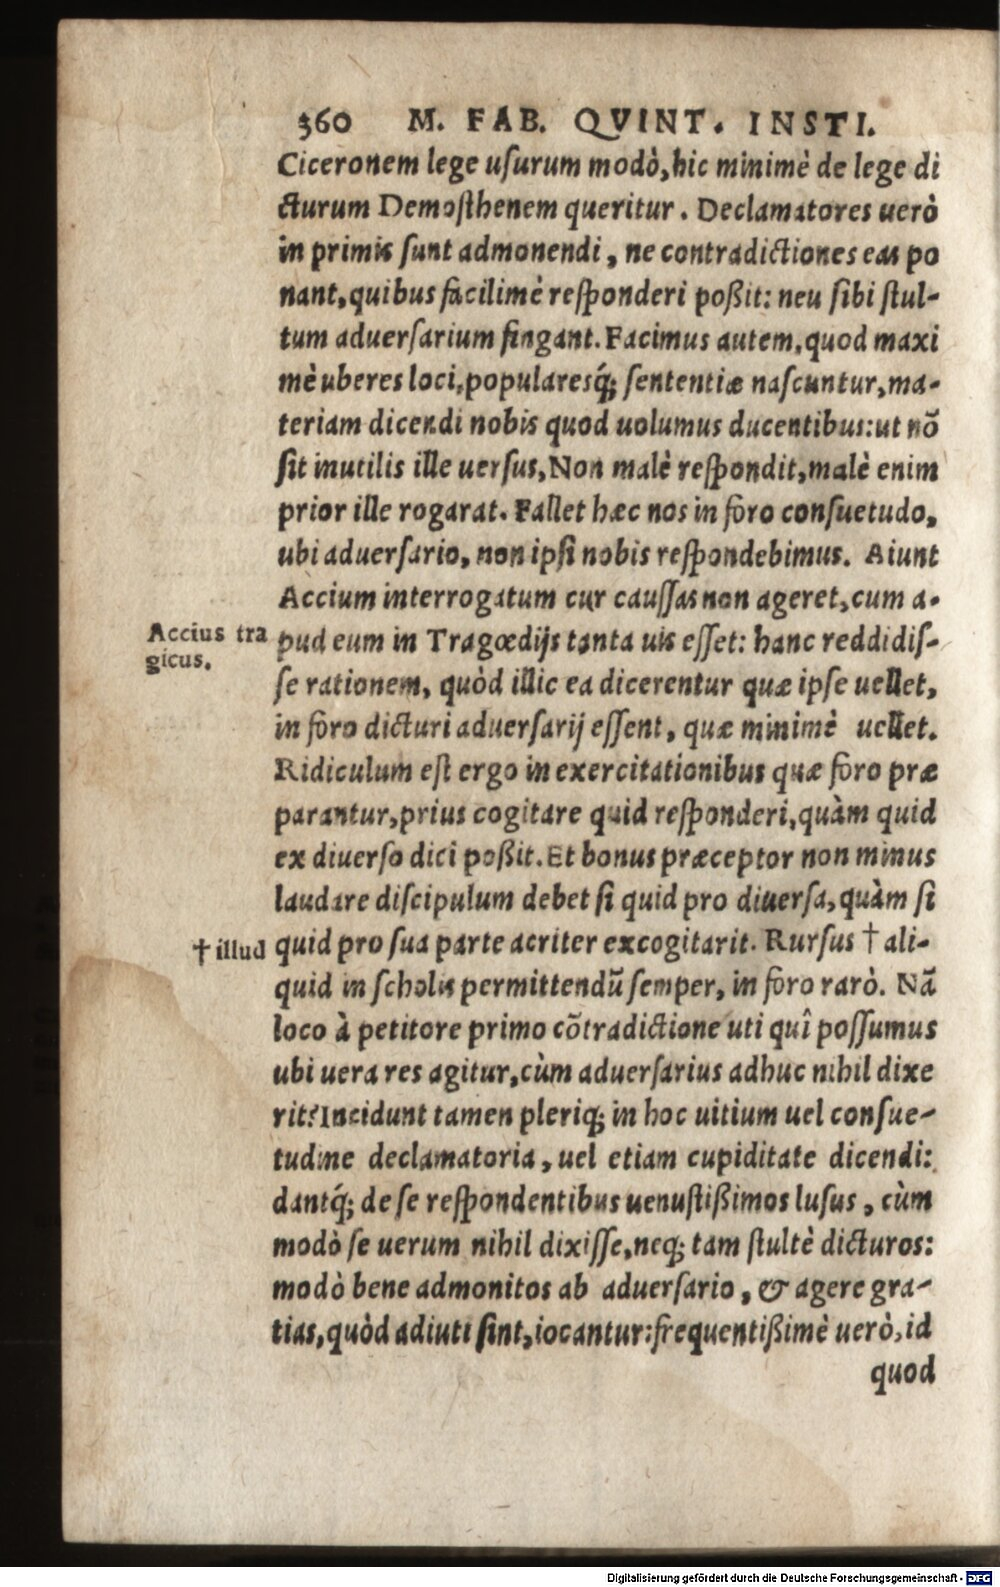 360 M. FAB. QVINT. INSTI.
Ciceronem lege uſurum modò, hic minimè de lege di
cturum Demoſthenem queritur. Declamatores uerò
in primis ſunt admonendi, ne contradictiones eas po
nant, quibus facilimè reſponderi poßit: neu ſibi ſtul-
tum aduerſarium fingant. Facimus autem, quod maxi
mè uberes loci, popularesq́; ſententiæ naſcuntur, ma-
teriam dicendi nobis quod uolumus ducentibus: ut nõ
ſit inutilis ille uerſus, Non malè reſpondit, malè enim
prior ille rogarat. Fallet hæc nos in foro conſuetudo,
ubi aduerſario, non ipſi nobis reſpondebimus. Aiunt
Accium interrogatum cur cauſſas non ageret, cum a-
Accius tra
gicus.
pud eum in Tragœdijs tanta uis eſſet: hanc reddidiſ-
ſe rationem, quòd illic ea dicerentur quæ ipſe uellet,
in foro dicturi aduerſarij eſſent, quæ minimè uellet.
Ridiculum eſt ergo in exercitationibus quæ foro præ
parantur, prius cogitare quid reſponderi, quàm quid
ex diuerſo dici poßit. Et bonus præceptor non minus
laudare diſcipulum debet ſi quid pro diuerſa, quàm ſi
† illud
quid pro ſua parte acriter excogitarit. Rurſus † ali-
quid in ſcholis permittendũ ſemper, in foro rarò. Nã
loco à petitore primo cõtradictione uti quî poſſumus
ubi uera res agitur, cùm aduerſarius adhuc nihil dixe
rit? Incidunt tamen pleriq; in hoc uitium uel conſue-
tudine declamatoria, uel etiam cupiditate dicendi:
dantq́; de ſe reſpondentibus uenuſtißimos luſus, cùm
modò ſe uerum nihil dixiſſe, neq; tam ſtultè dicturos:
modò bene admonitos ab aduerſario, & agere gra-
tias, quòd adiuti ſint, iocantur: frequentißimè uerò, id
quod
Digitalisierung gefördert durch die Deutsche Forschungsgemeinschaft - DFG